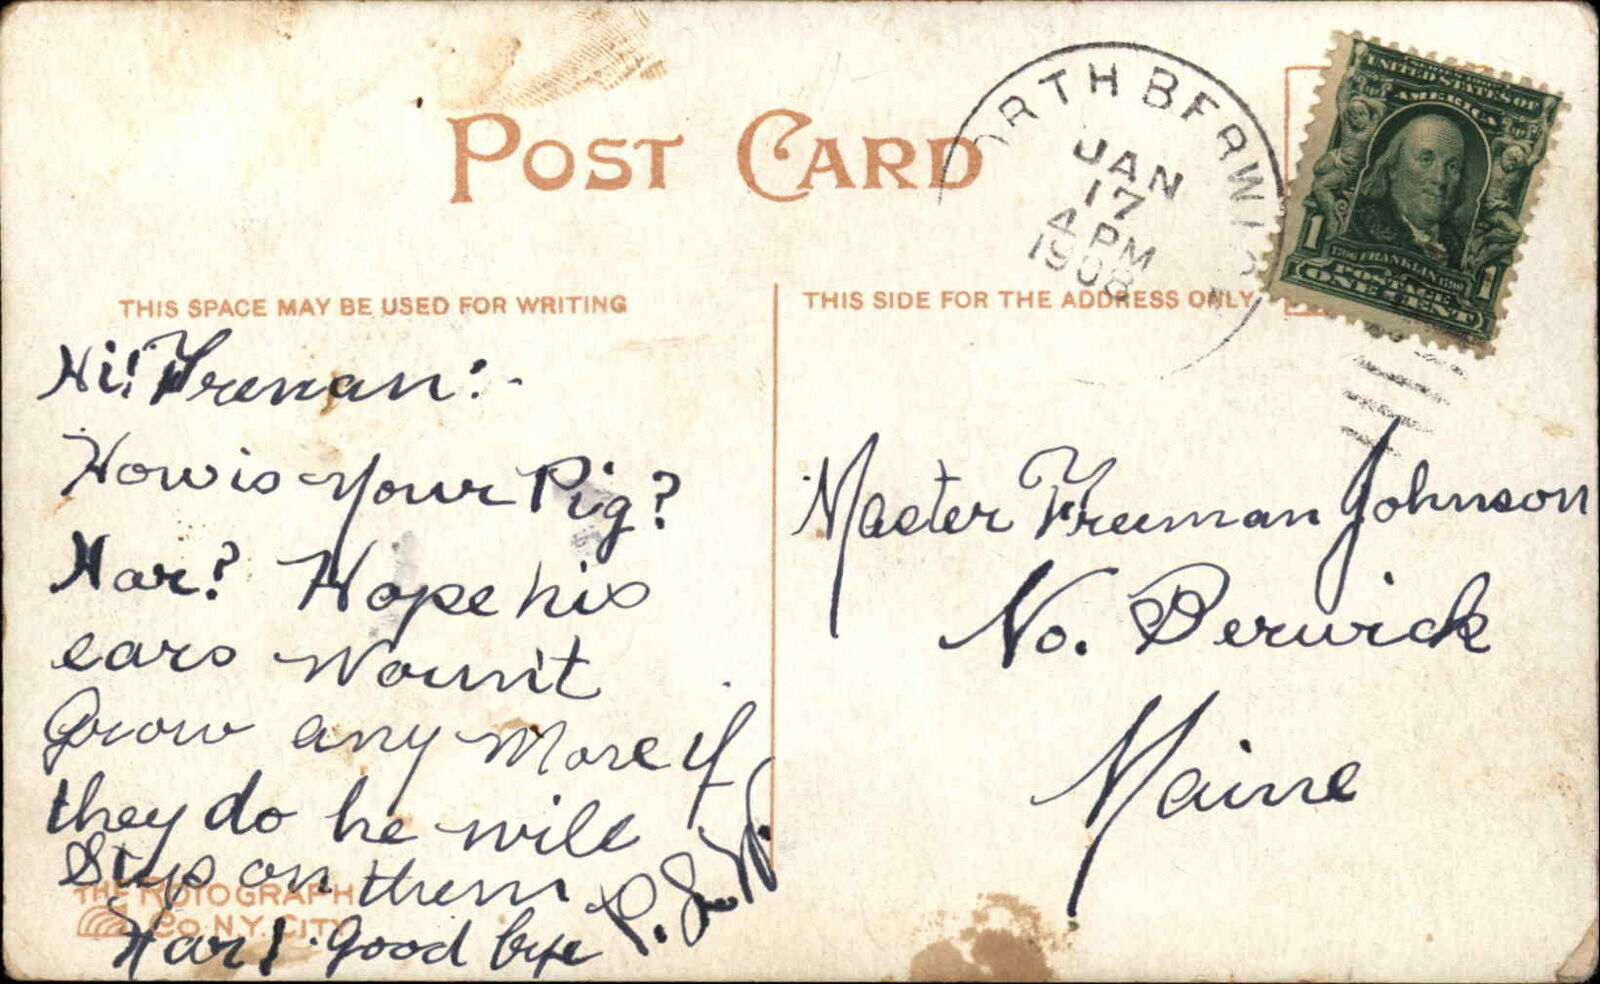 POST CARD
NORTH BERWICK
JAN
17
4 PM
1908
UNITED STATES OF
AMERICA
1706 FRANKLIN 1790
POSTAGE
1 ONE CENT 1
THIS SPACE MAY BE USED FOR WRITING
Hi! Freman:-
How is your Pig?
Har? Hope his
ears Wount
Grow any More if
they do he will
Step on them
Har! Good bye
P. L. W.
THE ROTOGRAPH
CO. N.Y. CITY
THIS SIDE FOR THE ADDRESS ONLY
Master Freeman Johnson
No. Berwick
Maine